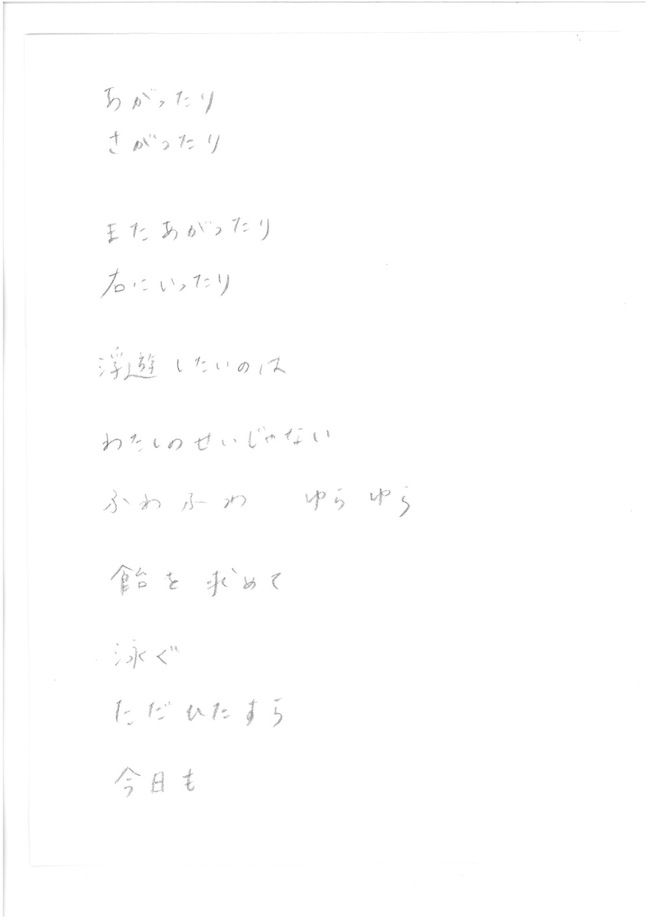 あがったり
さがったり
またあがったり
右にいったり
浮遊したいのは
わたしのせいじゃない
ふわふわ　ゆらゆら
飴を求めて
泳ぐ
ただひたすら
今日も